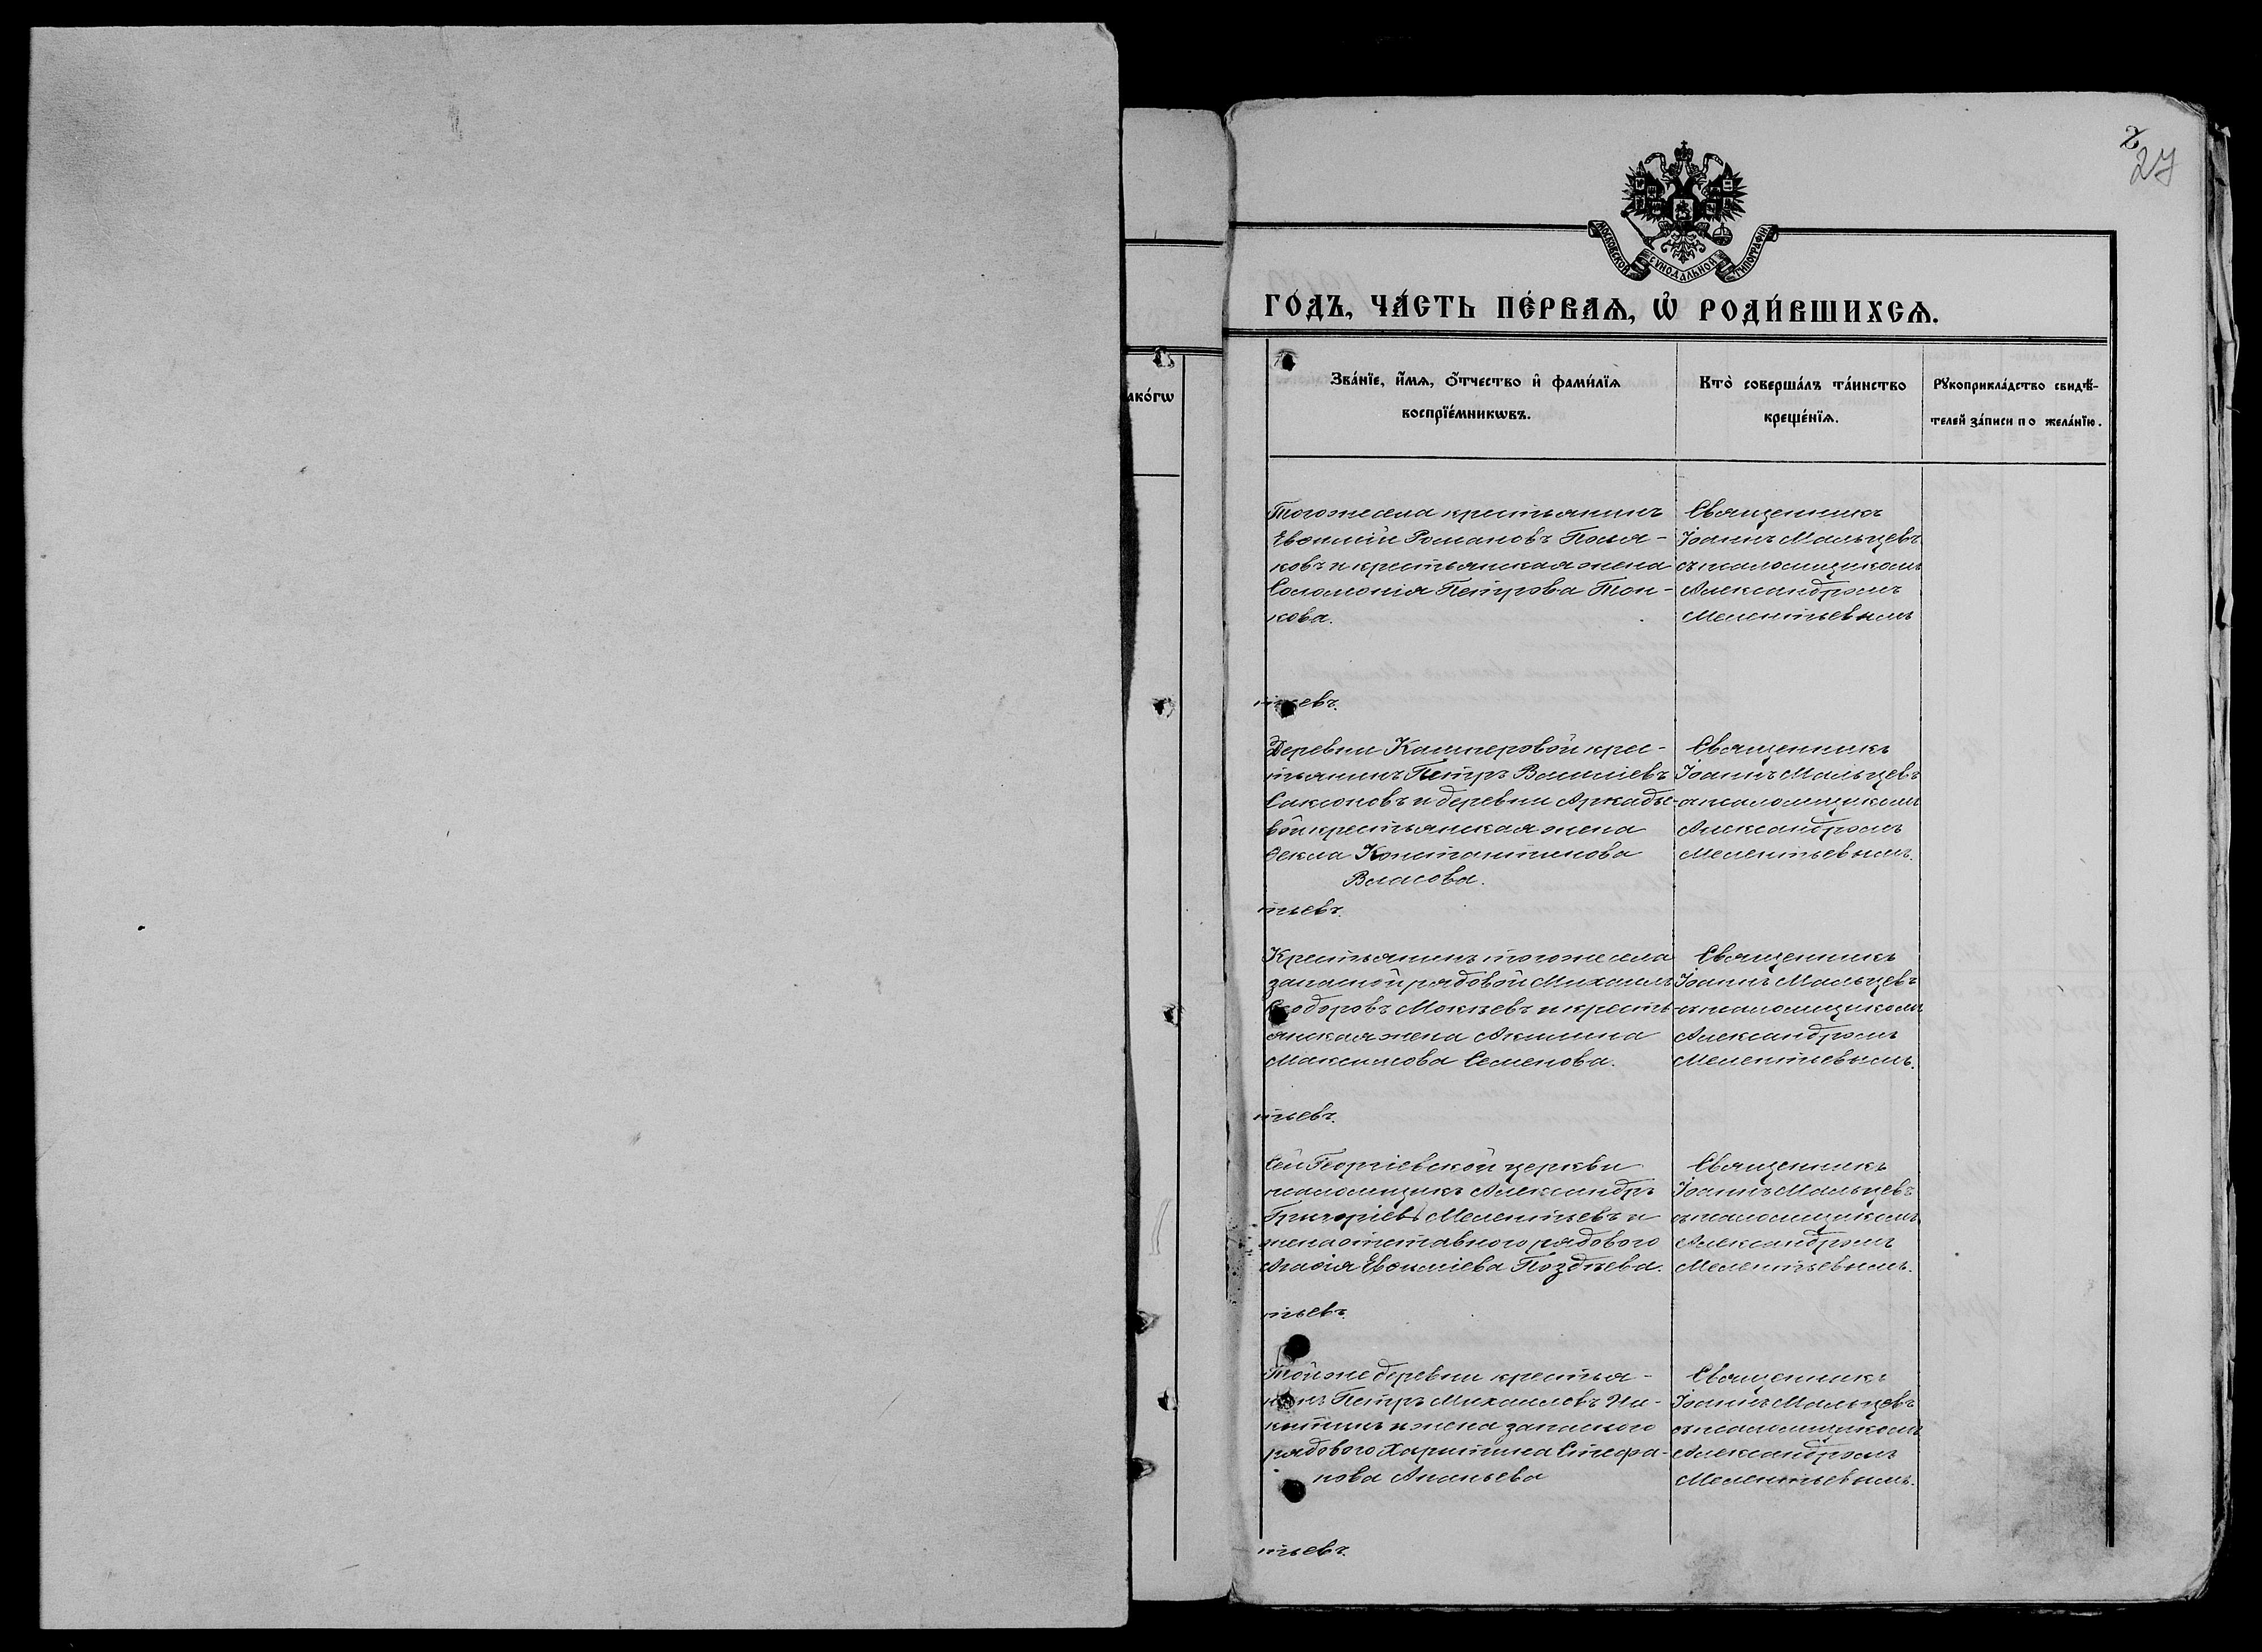 2
27
МОСКОВСКОЙ СѴНОДАЛЬНОЙ ТИПОГРАФІИ
ГО́ДЪ, ЧА́СТЬ ПЕ́РВАѦ, Ѡ҆ РОДИ́ВШИХСѦ.
ако́гѡ
Зва́нїе, и҆́мѧ, ѻ҆́тчество и҆ фами́лїѧ
воспрїе́мникѡвъ.
Кто̀ соверша́лъ та́инство
креще́нїѧ.
Рꙋкоприкла́дство свидѣ́-
телей за́писи по жела́нїю.
Тогоже села крестьянинъ
Евѳимій Романовъ Поля-
ковъ и крестьянская жена
Соломонія Петрова Тон-
кова.
Священникъ
Іоаннъ Мальцевъ
съ псаломщикомъ
Александромъ
Мелентьевымъ
тьевъ.
Деревни Кашперовой крес-
тьянинъ Петръ Васильевъ
Саксоновъ и деревни Аркадье-
вой крестьянская жена
Ѳекла Константинова
Власова.
Священникъ
Іоаннъ Мальцевъ
съ псаломщикомъ
Александромъ
Мелентьевымъ.
тьевъ.
Крестьянинъ тогоже села
запасной рядовой Михаилъ
Ѳеодоровъ Мокѣевъ и кресть-
янская жена Акилина
Максимова Семенова.
Священникъ
Іоаннъ Мальцевъ
съ псаломщикомъ
Александромъ
Мелентьевымъ.
тьевъ.
Сей Георгіевской церкви
псаломщикъ Александръ
Григоріевъ Мелентьевъ и
жена отставного рядового
Агаѳія Евѳиміева Позднѣева.
Священникъ
Іоаннъ Мальцевъ
съ псаломщикомъ
Александромъ
Мелентьевымъ.
тьевъ.
Той же деревни крестья-
нинъ Петръ Михаиловъ Ни-
китинъ и жена запасного
рядового Харитина Стефа-
нова Ананьева
Священникъ
Іоаннъ Мальцевъ
съ псаломщикомъ
Александромъ
Мелентьевымъ.
тьевъ.